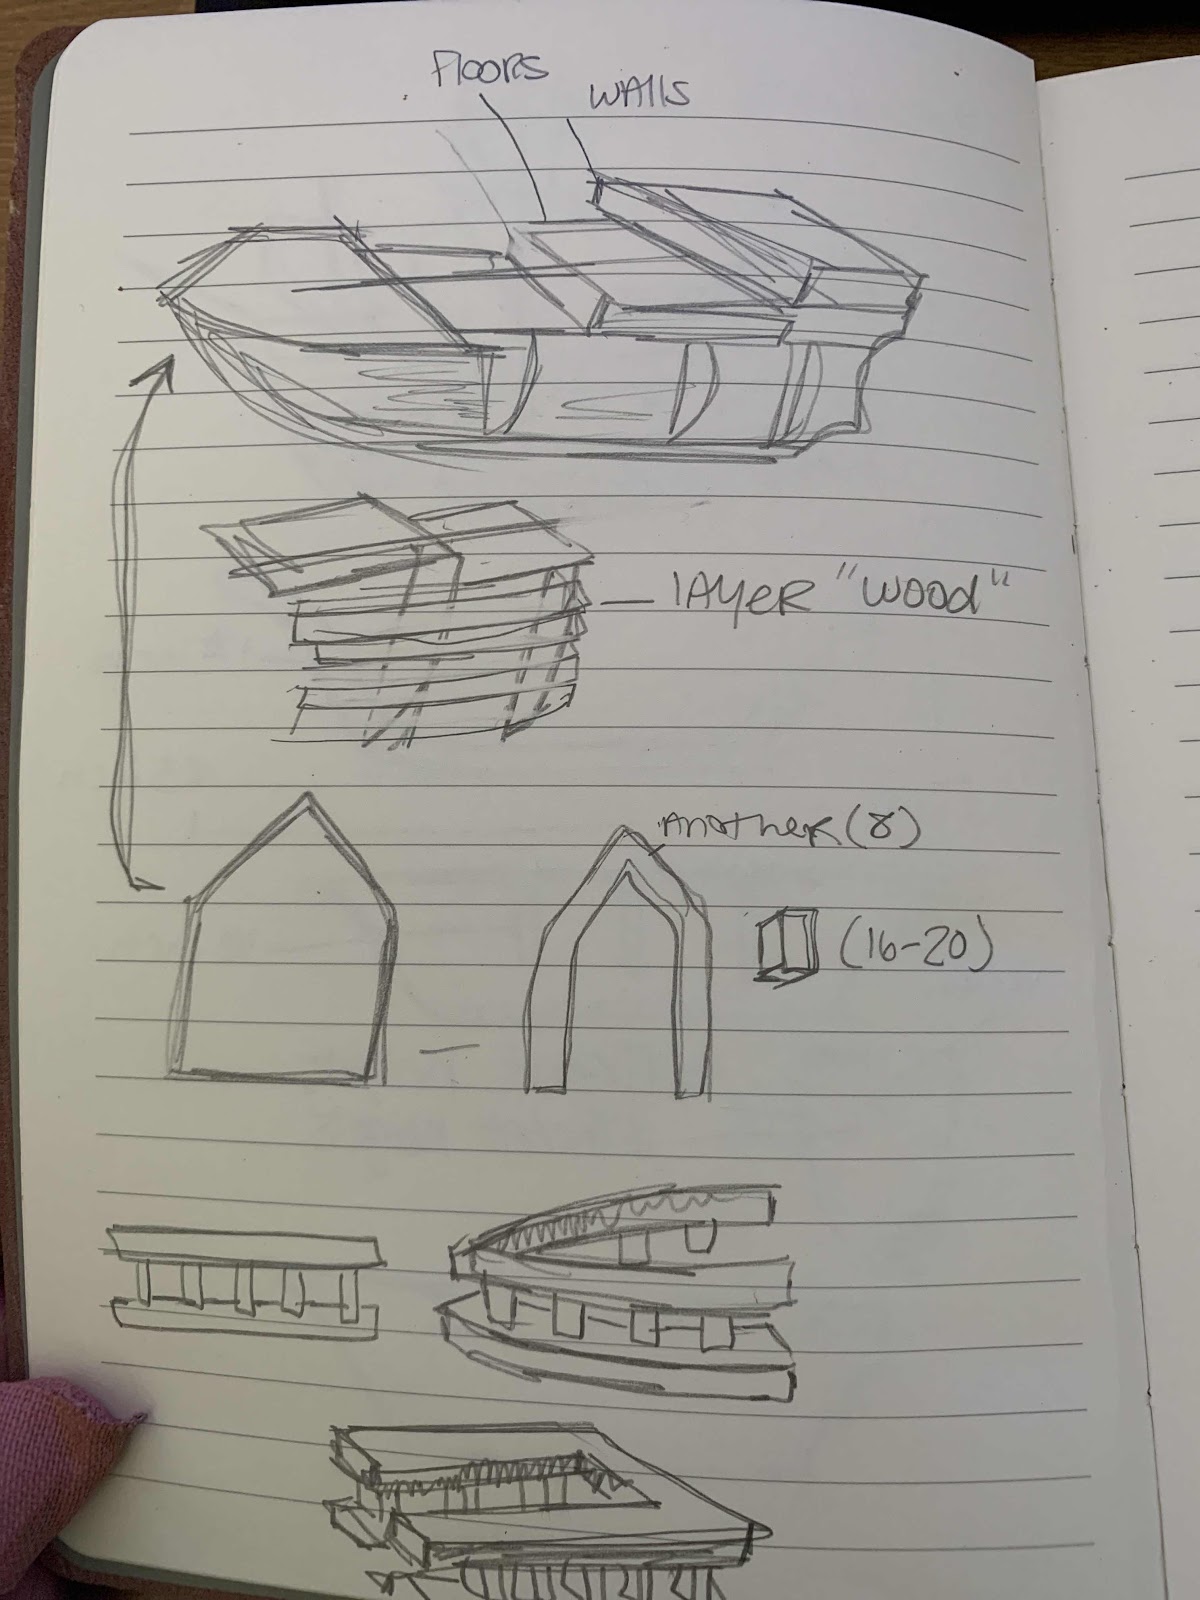 Floors
Walls
Layer "wood"
Another (8)
(16-20)